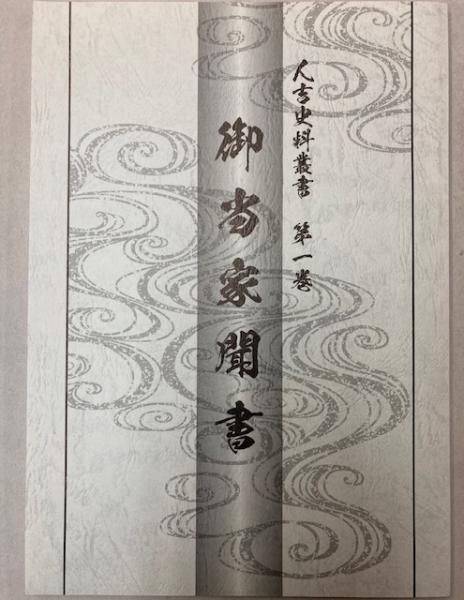 人吉史料叢書　第一巻
御当家聞書